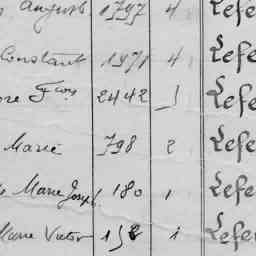 August 1797 4 Lefe
Constant 1971 4 Lefe
Fçois 2442 1 Lefe
Marie 798 2 Lefe
Marie Joseph 180 1 Lefe
Marie Victor 1 Lefe